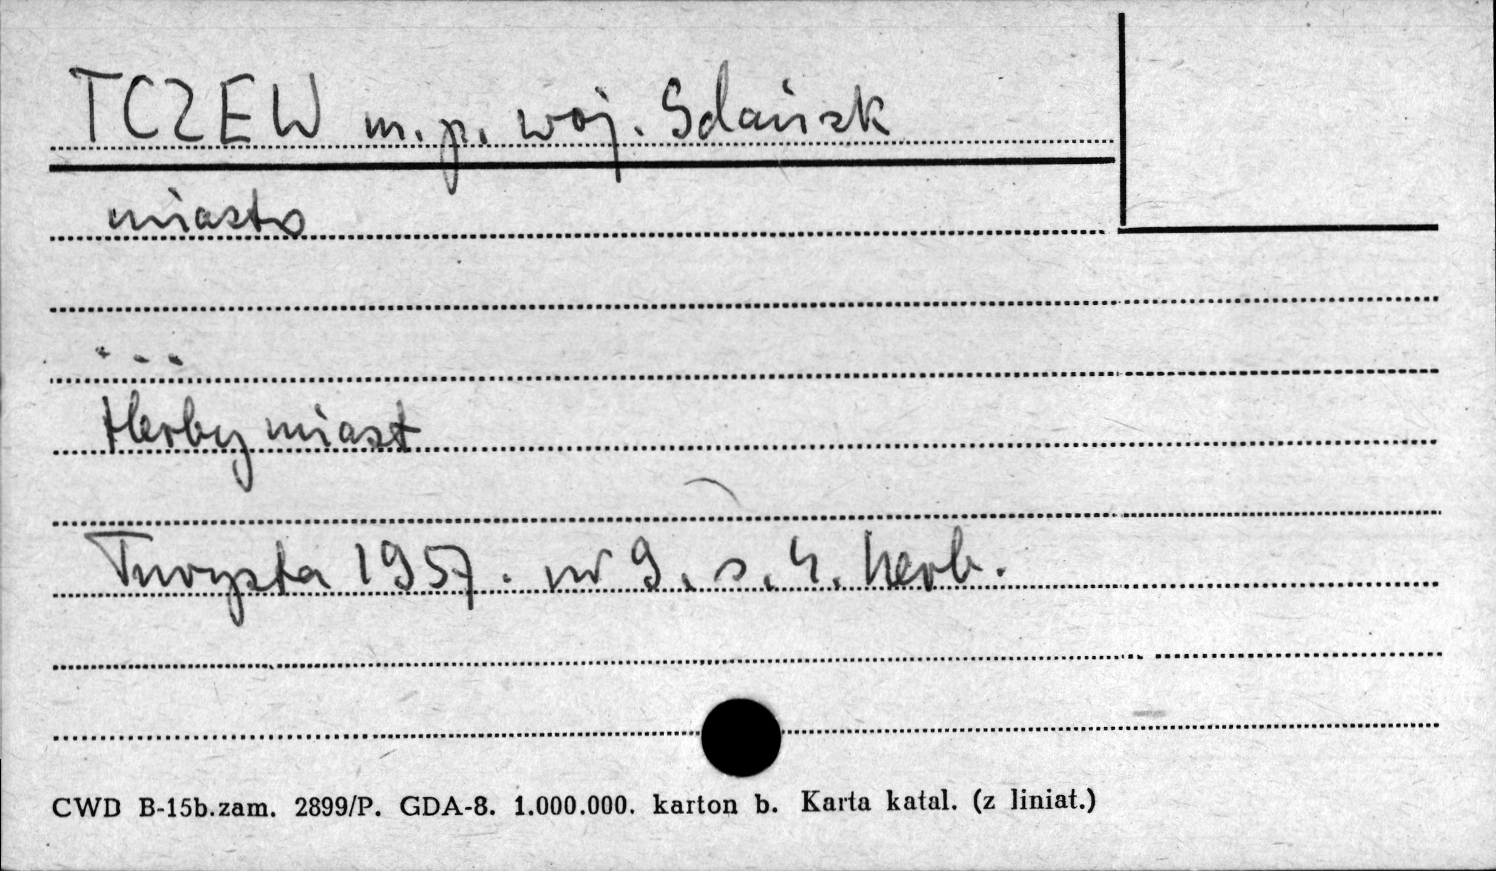 TCZEW m.p. woj. Gdańsk
miasto
...
Herby miast
Turysta 1957. nr 9. s. 4. herb.
CWD B-15b.zam. 2899/P. GDA-8. 1.000.000. karton b. Karta katal. (z liniat.)